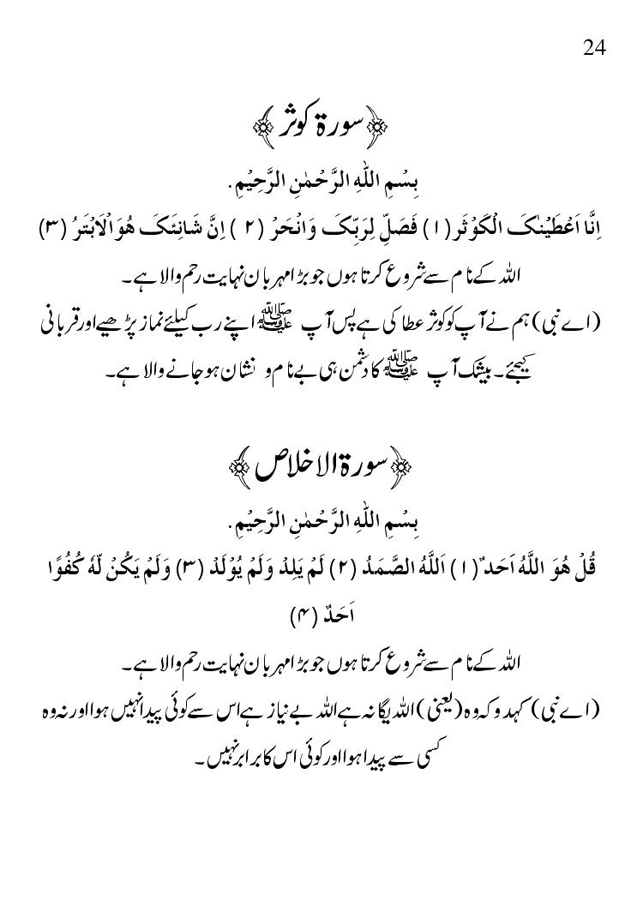 24
﴿سورۃ کوثر﴾
بِسْمِ اللّٰهِ الرَّحْمٰنِ الرَّحِيْمِ.
اِنَّا اَعْطَيْنٰکَ الْکَوْثَر(۱) فَصَلِّ لِرَبِّکَ وَانْحَرْ (۲) اِنَّ شَانِئَکَ هُوَ الْاَبْتَرُ (۳)
اللہ کے نام سے شروع کرتا ہوں جو بڑا مہربان نہایت رحم والا ہے۔
(اے نبی) ہم نے آپ کو کوثر عطا کی ہے پس آپ ﷺ اپنے رب کیلئے نماز پڑھیے اور قربانی
کیجئے۔ بیشک آپ ﷺ کا دشمن ہی بے نام و نشان ہو جانے والا ہے۔
﴿سورۃ الاخلاص﴾
بِسْمِ اللّٰهِ الرَّحْمٰنِ الرَّحِيْمِ.
قُلْ هُوَ اللَّهُ اَحَد ٌ(۱) اَللَّهُ الصَّمَدُ (۲) لَمْ يَلِدْ وَلَمْ يُوْلَدْ (۳) وَلَمْ يَکُنْ لَّهٗ کُفُوًا
اَحَدٌ (۴)
اللہ کے نام سے شروع کرتا ہوں جو بڑا مہربان نہایت رحم والا ہے۔
(اے نبی) کہدو کہ وہ (یعنی) اللہ یگانہ ہے اللہ بے نیاز ہے اس سے کوئی پیدا نہیں ہوا اور نہ وہ
کسی سے پیدا ہوا اور کوئی اس کا برابر نہیں۔